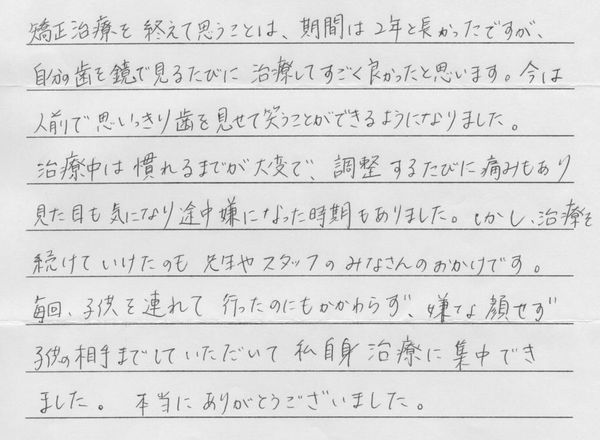 矯正治療を終えて思うことは、期間は2年と長かったですが、
自分の歯を鏡で見るたびに治療してすごく良かったと思います。今は
人前で思いっきり歯を見せて笑うことができるようになりました。
治療中は慣れるまでが大変で、調整するたびに痛みもあり
見た目も気になり途中嫌になった時期もありました。しかし、治療を
続けていけたのも先生やスタッフのみなさんのおかげです。
毎回、子供を連れて行ったのにもかかわらず、嫌な顔せず
子供の相手までしていただいて私自身治療に集中でき
ました。本当にありがとうございました。